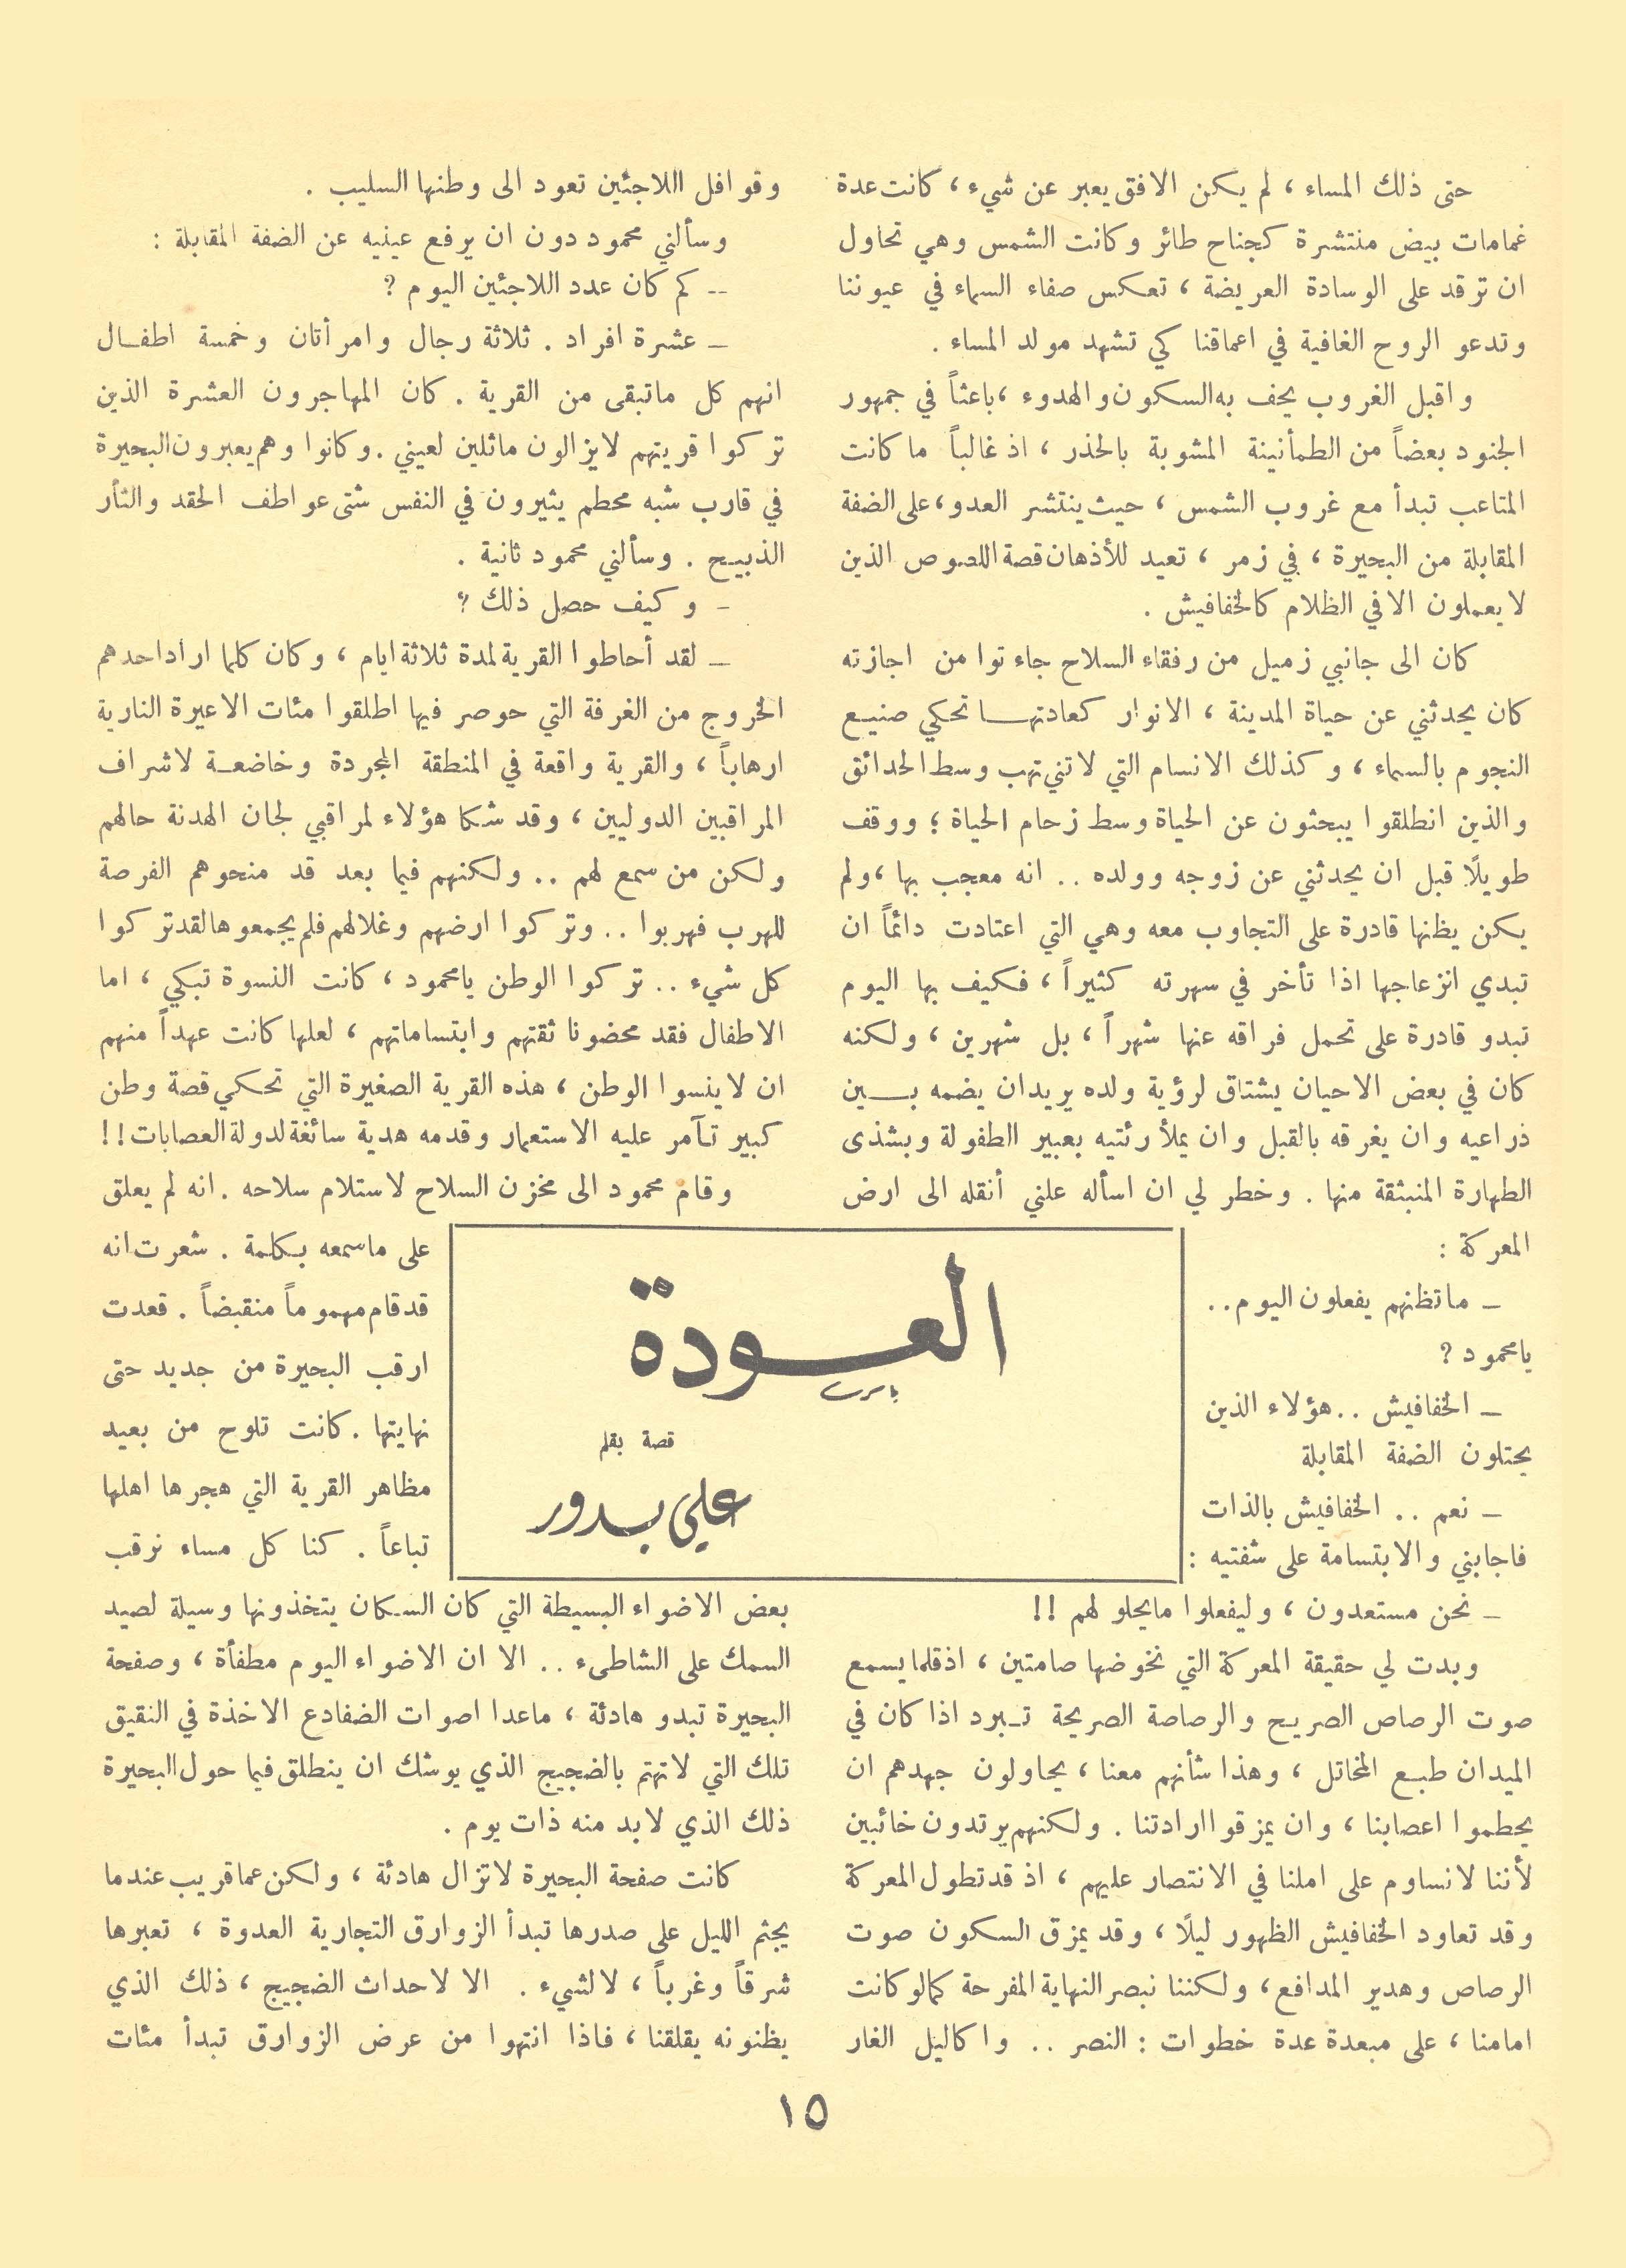 حتى ذلك المساء ، لم يكن الافق يعبر عن شيء ، كانت عدة
غمامات بيض منتشرة كجناح طائر وكانت الشمس وهي تحاول
ان ترقد على الوسادة العريضة ، تعكس صفاء السماء في عيوننا
وتدعو الروح الغافية في اعماقنا كي تشهد مولد المساء .
واقبل الغروب يحف به السكون والهدوء ، باعثاً في جمهور
الجنود بعضاً من الطمأنينة المشوبة بالحذر ، اذ غالباً ما كانت
المتاعب تبدأ مع غروب الشمس ، حيث ينتشر العدو ، على الضفة
المقابلة من البحيرة ، في زمر ، تعيد للأذهان قصة اللصوص الذين
لا يعملون الا في الظلام كالخفافيش .
كان الى جانبي زميل من رفقاء السلاح جاء توا من اجازته
كان يحدثني عن حياة المدينة ، الانوار كعادتها تحكي صنيع
النجوم بالسماء ، وكذلك الانسام التي لاتني تهب وسط الحدائق
والذين انطلقوا يبحثون عن الحياة وسط زحام الحياة ؛ ووقف
طويلاً قبل ان يحدثني عن زوجه وولده .. انه معجب بها ، ولم
يكن يظنها قادرة على التجاوب معه وهي التي اعتادت دائماً ان
تبدي انزعاجها اذا تأخر في سهرته كثيراً ، فكيف بها اليوم
تبدو قادرة على تحمل فراقه عنها شهراً ، بل شهرين ، ولكنه
كان في بعض الاحيان يشتاق لرؤية ولده يريدان يضمه بين
ذراعيه وان يغرقه بالقبل وان يملأ رئتيه بعبير الطفولة وبشذى
الطهارة المنبثقة منها . وخطر لي ان اسأله علني أنقله الى ارض
المعركة :
– ماتظنهم يفعلون اليوم ..
يامحمود ?
– الخفافيش .. هؤلاء الذين
يحتلون الضفة المقابلة
– نعم .. الخفافيش بالذات
فاجابني والابتسامة على شفتيه :
– نحن مستعدون ، وليفعلوا مايحلو لهم !!
وبدت لي حقيقة المعركة التي نخوضها صامتين ، اذ قلما يسمع
صوت الرصاص الصريح والرصاصة الصريحة تبرد اذا كان في
الميدان طبع المخاتل ، وهذا شأنهم معنا ، يحاولون جهدهم ان
يحطموا اعصابنا ، وان يمزقوا ارادتنا . ولكنهم يرتدون خائبين
لأننا لانساوم على املنا في الانتصار عليهم ، اذ قد تطول المعركة
وقد تعاود الخفافيش الظهور ليلاً ، وقد يمزق السكون صوت
الرصاص وهدير المدافع ، ولكننا نبصر النهاية المفرحة كما لو كانت
امامنا ، على مبعدة عدة خطوات : النصر .. واكاليل الغار
وقوافل اللاجئين تعود الى وطنها السليب .
وسألني محمود دون ان يرفع عينيه عن الضفة المقابلة :
-- كم كان عدد اللاجئين اليوم ?
– عشرة افراد . ثلاثة رجال وامرأتان وخمسة اطفال
انهم كل ماتبقى من القرية . كان المهاجرون العشرة الذين
تركوا قريتهم لايزالون ماثلين لعيني . وكانوا وهم يعبرون البحيرة
في قارب شبه محطم يثيرون في النفس شتى عواطف الحقد والثأر
الذبيح . وسألني محمود ثانية .
– وكيف حصل ذلك ؟
– لقد أحاطوا القرية لمدة ثلاثة ايام ، وكان كلما اراد احدهم
الخروج من الغرفة التي حوصر فيها اطلقوا مئات الاعيرة النارية
ارهاباً ، والقرية واقعة في المنطقة المجردة وخاضعة لاشراف
المراقبين الدوليين ، وقد شكا هؤلاء لمراقبي لجان الهدنة حالهم
ولكن من سمع لهم .. ولكنهم فيما بعد قد منحوهم الفرصة
للهرب فهربوا .. وتركوا ارضهم وغلالهم فلم يجمعوها لقد تركوا
كل شيء .. تركوا الوطن يامحمود ، كانت النسوة تبكي ، اما
الاطفال فقد محضونا ثقتهم وابتساماتهم ، لعلها كانت عهداً منهم
ان لاينسوا الوطن ، هذه القرية الصغيرة التي تحكي قصة وطن
كبير تآمر عليه الاستعمار وقدمه هدية سائغة لدولة العصابات !!
وقام محمود الى مخزن السلاح لاستلام سلاحه . انه لم يعلق
على ماسمعه بكلمة . شعرت انه
قد قام مهموماً منقبضاً . قعدت
ارقب البحيرة من جديد حتى
نهايتها . كانت تلوح من بعيد
مظاهر القرية التي هجرها اهلها
تباعاً . كنا كل مساء نرقب
بعض الاضواء البسيطة التي كان السكان يتخذونها وسيلة لصيد
السمك على الشاطىء .. الا ان الاضواء اليوم مطفأة ، وصفحة
البحيرة تبدو هادئة ، ماعدا اصوات الضفادع الاخذة في النقيق
تلك التي لاتهتم بالضجيج الذي يوشك ان ينطلق فيما حول البحيرة
ذلك الذي لابد منه ذات يوم .
كانت صفحة البحيرة لاتزال هادئة ، ولكن عما قريب عندما
يجثم الليل على صدرها تبدأ الزوارق التجارية العدوة ، تعبرها
شرقاً وغرباً ، لالشيء . الا لاحداث الضجيج ، ذلك الذي
يظنونه يقلقنا ، فاذا انتهوا من عرض الزوارق تبدأ مئات
العودة
قصة بقلم
علي بدور
١٥